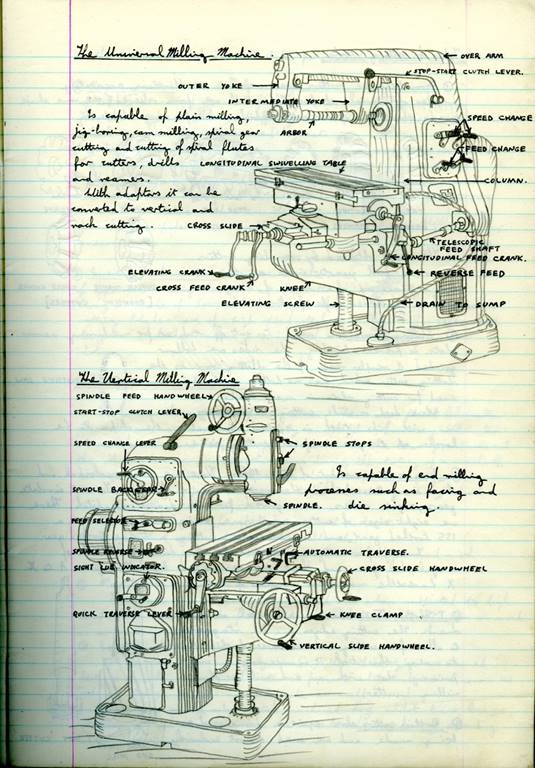 The Universal Milling Machine.
OVER ARM
STOP-START CLUTCH LEVER.
OUTER YOKE
INTERMEDIATE YOKE
Is capable of plain milling,
jig-boring, cam milling, spiral gear
cutting and cutting of spiral flutes
for cutters, drills
and reamers.
With adaptors it can be
converted to vertical and
rack cutting.
ARBOR
SPEED CHANGE
FEED CHANGE
LONGITUDINAL SWIVELLING TABLE
COLUMN.
CROSS SLIDE
TELESCOPIC
FEED SHAFT
LONGITUDINAL FEED CRANK.
ELEVATING CRANK
REVERSE FEED
CROSS FEED CRANK
KNEE
ELEVATING SCREW
DRAIN TO SUMP
The Vertical Milling Machine
SPINDLE FEED HANDWHEEL
START-STOP CLUTCH LEVER
SPEED CHANGE LEVER
SPINDLE STOPS
Is capable of end milling
processes such as facing and
die sinking.
SPINDLE BACK GEAR
SPINDLE.
FEED SELECTOR
SPINDLE REVERSE
AUTOMATIC TRAVERSE.
SIGHT LUB INDICATOR.
CROSS SLIDE HANDWHEEL
QUICK TRAVERSE LEVER
KNEE CLAMP
VERTICAL SLIDE HANDWHEEL.